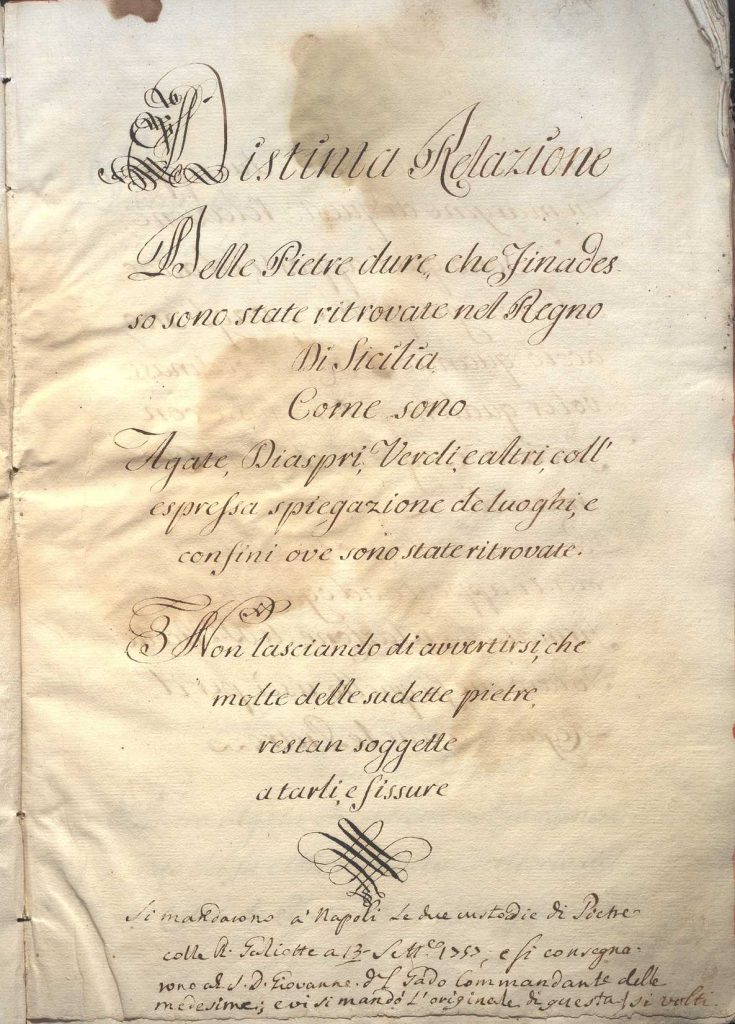 Distinta Relazione
Delle Pietre dure, che Finades
so sono state ritrovate nel Regno
Di Sicilia
Come sono
Agate, Diaspri, Verdi, e altri, coll'
espressa spiegazione de luoghi, e
confini ove sono state ritrovate.
Non lasciando di avvertirsi, che
molte delle sudette pietre,
restan soggette
a tarli, e fissure
Si mandarono a' Napoli le due custodie di Pietre
colle R. Galiotte a 13 Sett.e 1757, e si consegna-
rono al S. D. Giovanne Commandante delle
medesime; e vi si mandò l'originale di questa / si volti.